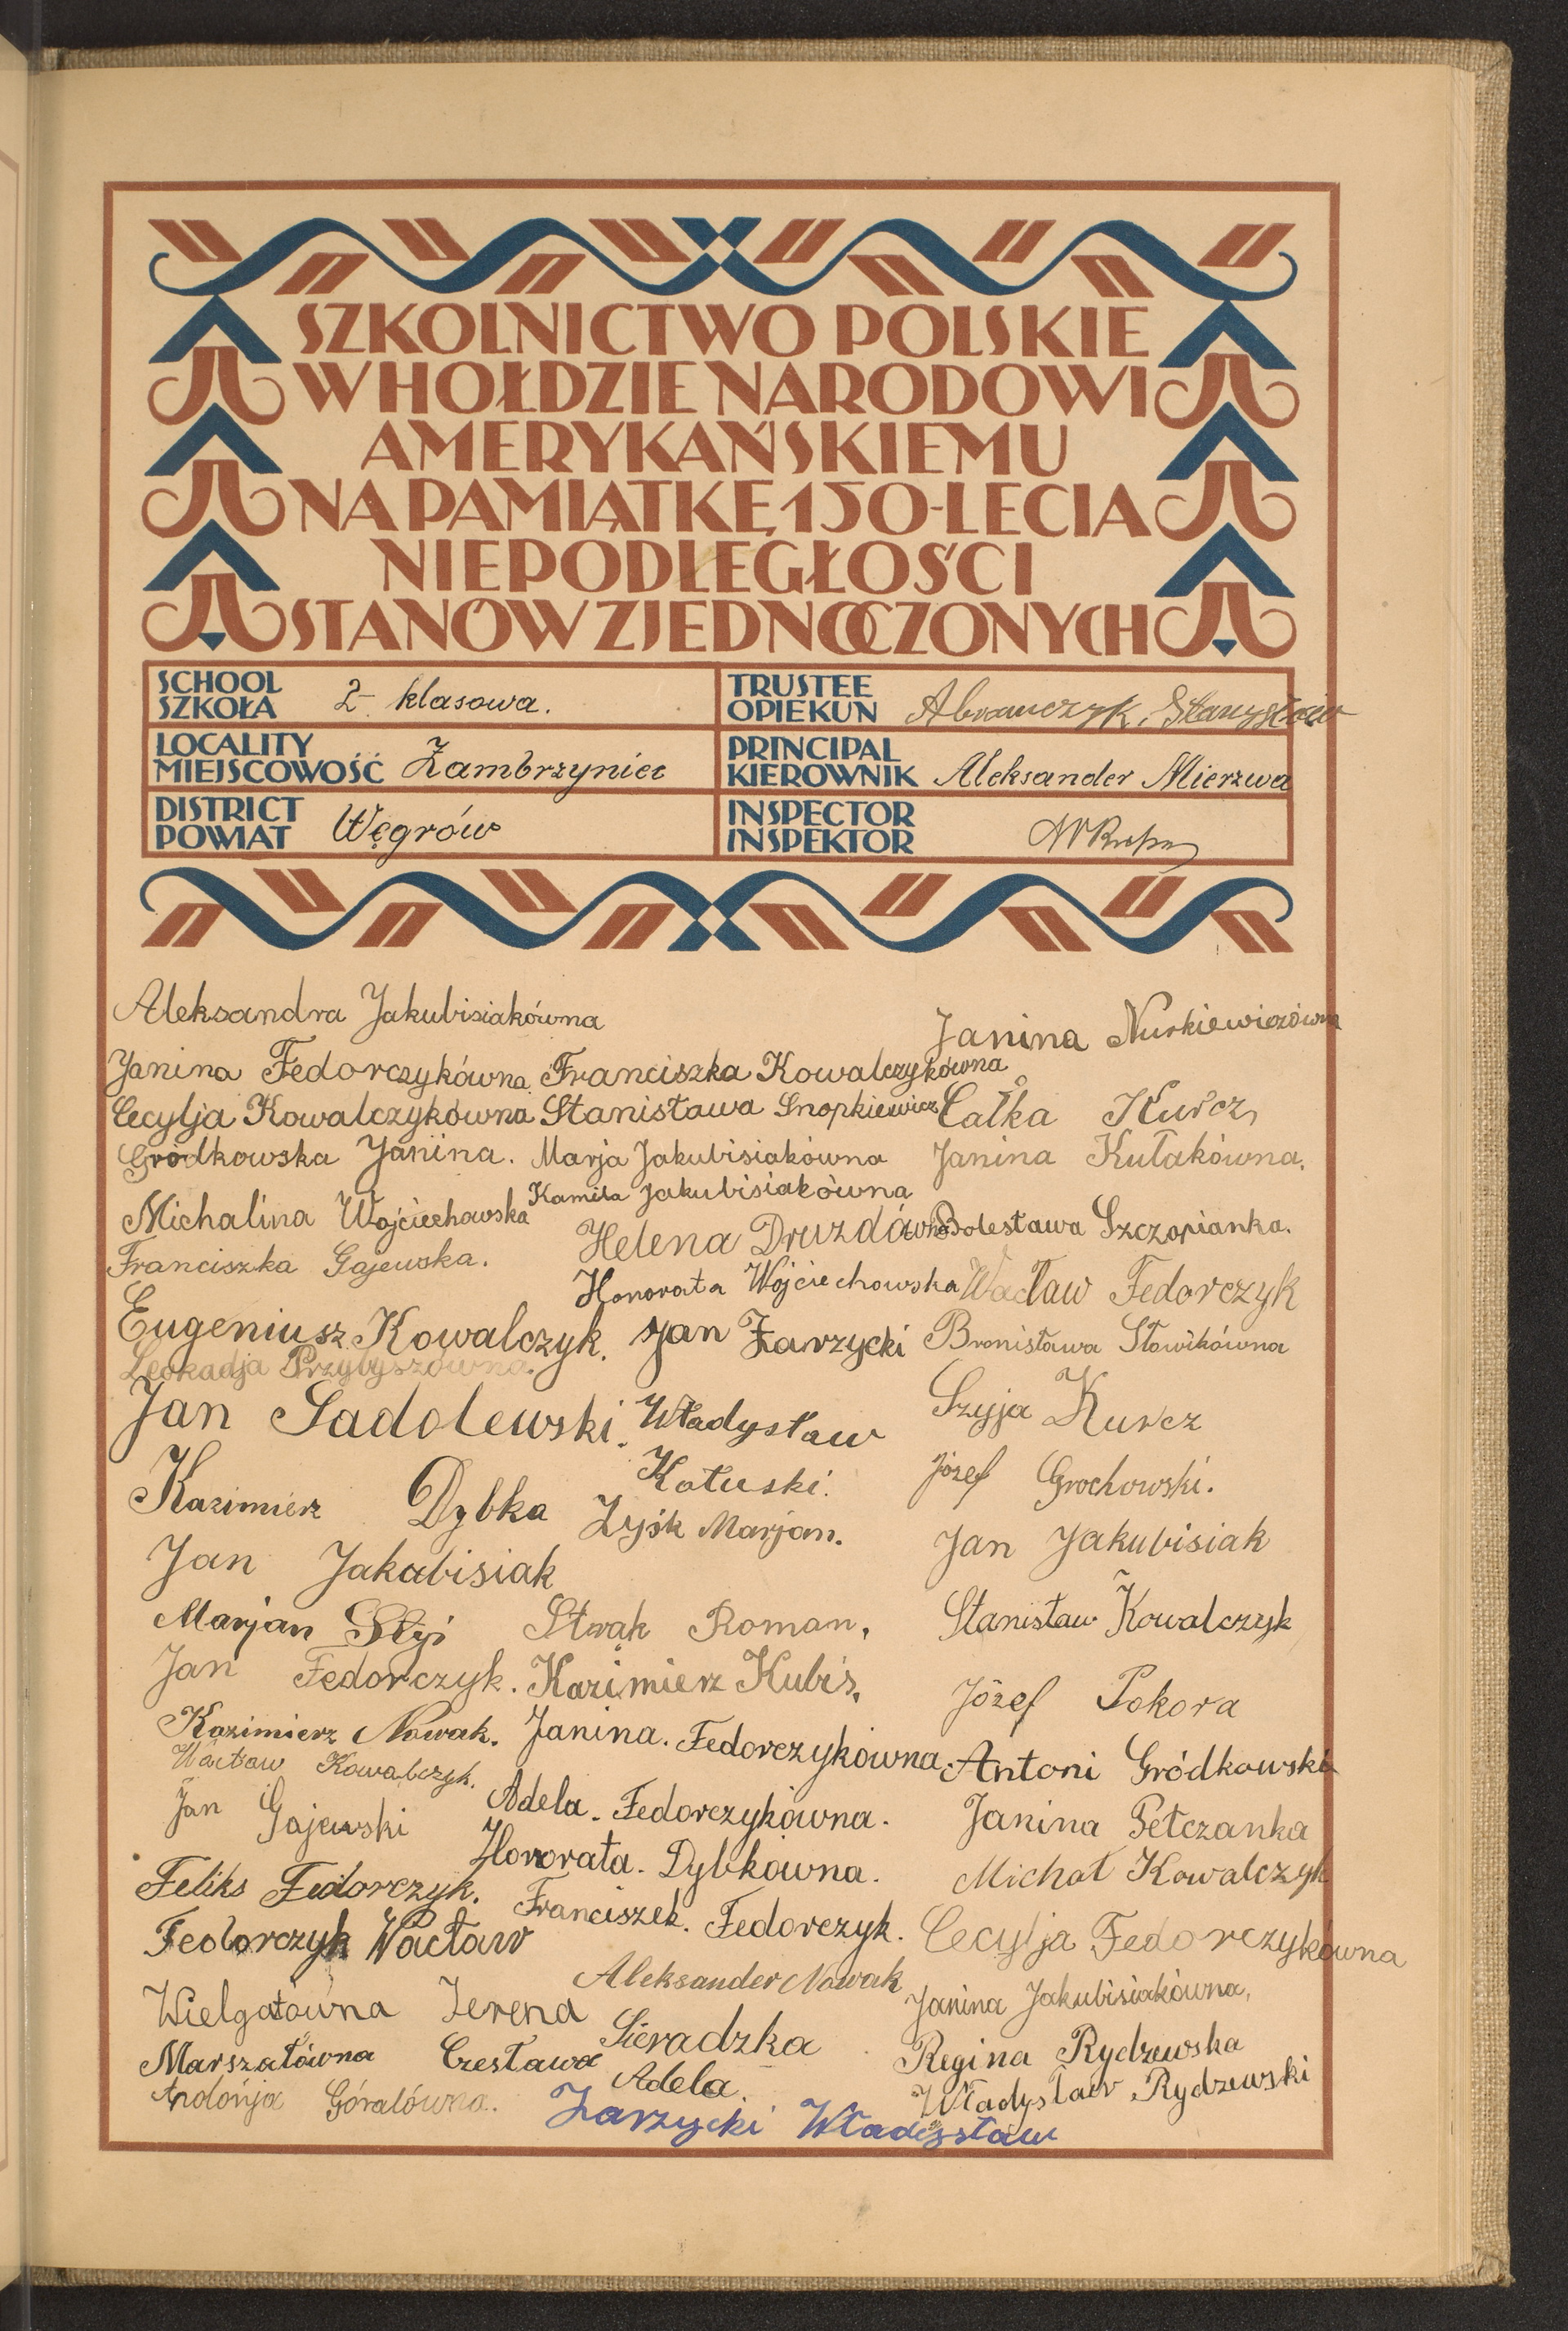 SZKOLNICTWO POLSKIE
W HOŁDZIE NARODOWI
AMERYKAŃSKIEMU
NA PAMIĄTKĘ 150-LECIA
NIEPODLEGŁOŚCI
STANÓW ZJEDNOCZONYCH
SCHOOL
SZKOŁA 2-klasowa.
LOCALITY
MIEJSCOWOŚĆ Żambrzyniec
DISTRICT
POWIAT Węgrów
TRUSTEE
OPIEKUN Abramczyk,
PRINCIPAL
KIEROWNIK Aleksander Mierzwa
INSPECTOR
INSPEKTOR
Aleksandra Jakubisiakówna
Janina Fedorczykówna
Cecylja Kowalczykówna
Gródkowska Janina.
Michalina Wojciechowska
Franciszka Gajewska.
Eugeniusz Kowalczyk.
Leokadja Przybyszówna.
Jan Sadolewski.
Kazimierz Dybka
Jan Jakubisiak
Marjan
Jan Fedorczyk.
Kazimierz Nowak.
Wacław Kowalczyk.
Jan Gajewski
Feliks Fedorczyk.
Fedorczyk Wacław
Wielgatówna Irena
Marszałówna Czesława
Góralówna.
Franciszka Kowalczykówna
Stanisława Snopkiewicz
Marja Jakubisiakówna
Kamila Jakubisiakówna
Helena Druzdówna
Honorata Wojciechowska
Jan Zarzycki
Władysław
Kałuski.
Zyśk Marjan.
Roman.
Kazimierz Kubiś.
Janina. Fedorczykówna.
Adela. Fedorczykówna.
Honorata. Dybkówna.
Franciszek. Fedorczyk.
Aleksander Nowak
Sieradzka
Adela.
Zarzycki Władysław
Janina Nurkiewiczówna
Całka Kurcz
Janina Kułakówna.
Bolesława Szczopianka.
Wacław Fedorczyk
Bronisława Słowikówna
Szyja Kurcz
Józef Grochowski.
Jan Jakubisiak
Stanisław Kowalczyk
Józef Pokora
Antoni Gródkowski
Janina Pełczanka
Michał Kowalczyk
Cecylja Fedorczykówna
Janina Jakubisiakówna,
Regina Rydzewska
Władysław Rydzewski